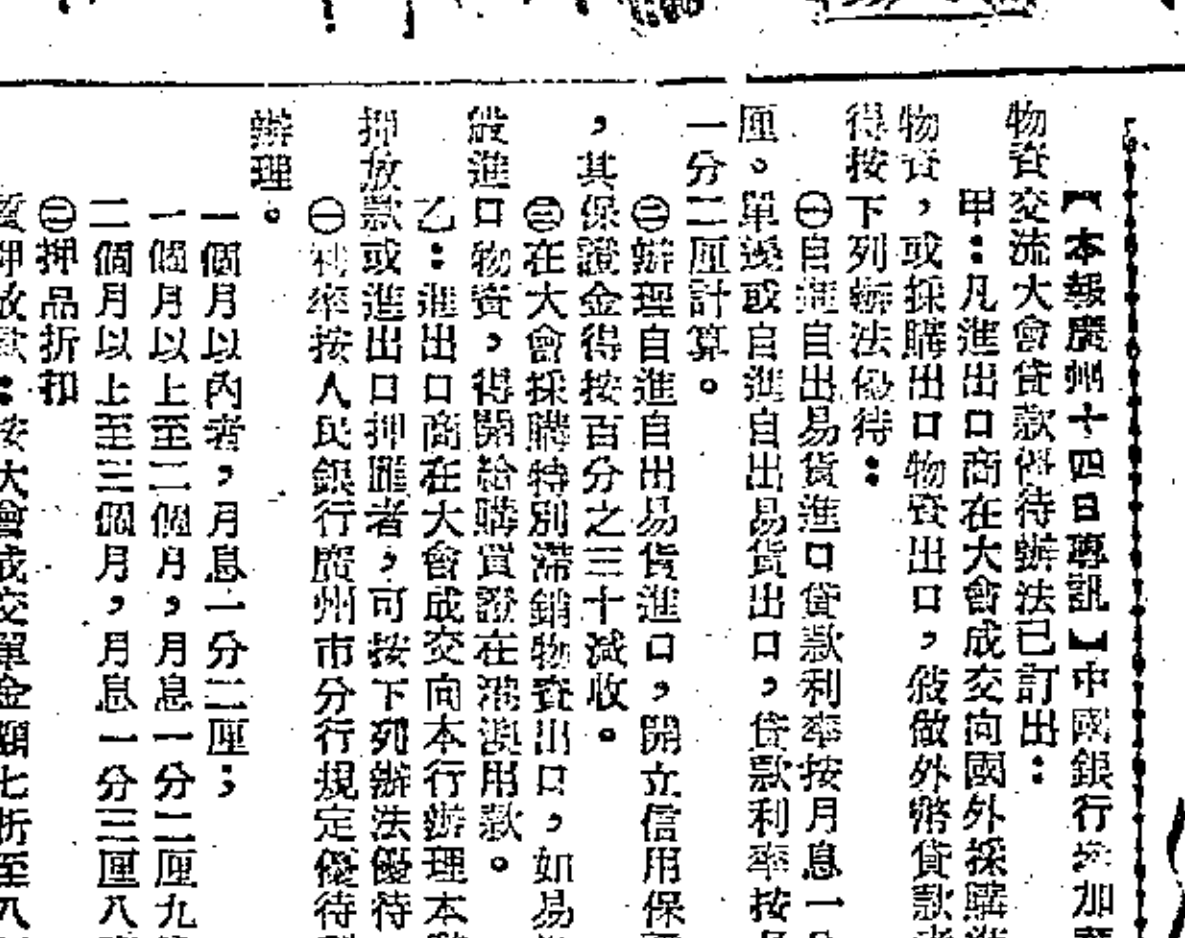 【本報廣州十四日專訊】中國銀行參加
物資交流大會貸款優待辦法已訂出：
甲：凡進出口商在大會成交向國外採購進
物資，或採購出口物資出口，敍做外幣貸款
得按下列辦法優待：
㊀自進自出易貨進口貸款利率按月息一
厘。單邊或自進自出易貨出口，貸款利率按
一分二厘計算。
㊁辦理自進自出易貨進口，開立信用保
，其保證金得按百分之三十減收。
㊂在大會採購特別滯銷物資出口，如易
貨進口物資，得開給購買證在港澳用款。
乙：進出口商在大會成交向本行辦理本
押放款或進出口押匯者，可按下列辦法優待
㊀利率按人民銀行廣州市分行規定優待
辦理。
一個月以內者，月息一分二厘；
一個月以上至二個月，月息一分二厘九
二個月以上至三個月，月息一分三厘八
㊁押品折扣
質押放款：按大會成交單金額七折至八